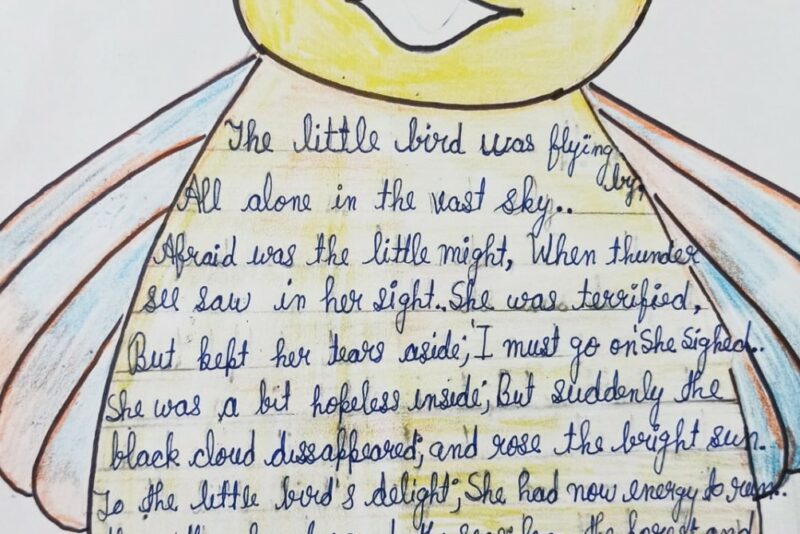 The little bird was flying by,
All alone in the vast sky..
Afraid was the little might, When thunder
see saw in her sight..She was terrified,
But kept her tears aside;'I must go on'She sighed..
She was a bit hopeless inside; But suddenly the
black cloud dissappeared; and rose the bright sun.
To the little bird's delight; She had now energy to run..
the forest and